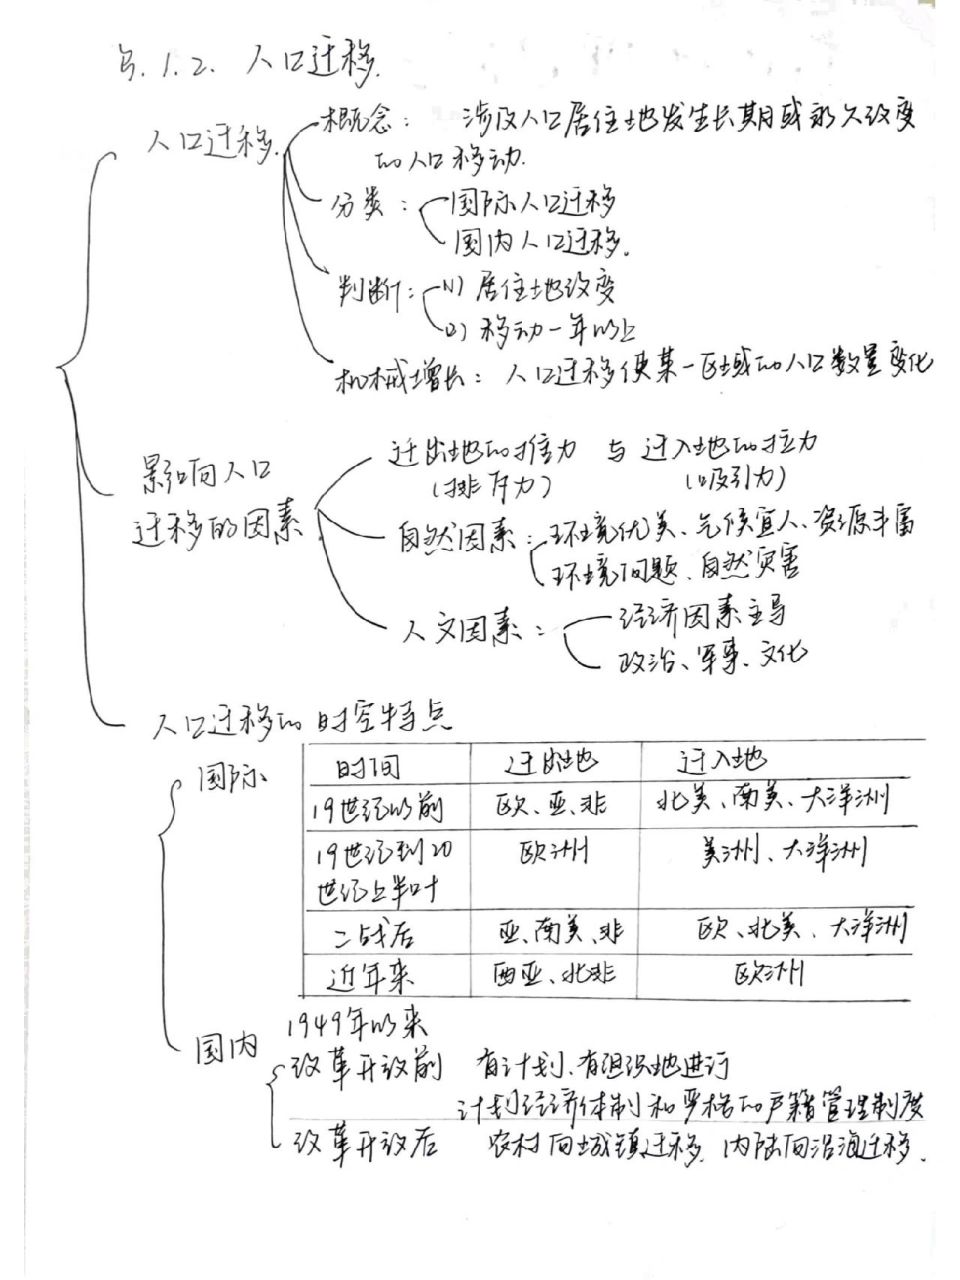 §.1.2. 人口迁移.
人口迁移.
概念： 涉及人口居住地发生长期或永久改变
的人口移动.
分类：
国际人口迁移
国内人口迁移.
判断：
(1) 居住地改变
(2) 移动一年以上
机械增长：人口迁移使某一区域的人口数量变化
影响人口
迁移的因素
迁出地的推力 与 迁入地的拉力
(排斥力) (吸引力)
自然因素：
环境优美、气候宜人、资源丰富
环境问题、自然灾害
人文因素：
经济因素主导
政治、军事、文化
人口迁移的时空特点
国际
时间 迁出地 迁入地
19世纪以前 欧、亚、非 北美、南美、大洋洲
19世纪到20 欧洲 美洲、大洋洲
世纪上半叶
二战后 亚、南美、非 欧、北美、大洋洲
近年来 西亚、北非 欧洲
国内
1949年以来
改革开放前 有计划、有组织地进行
计划经济体制和严格的户籍管理制度
改革开放后 农村向城镇迁移. 内陆向沿海迁移.